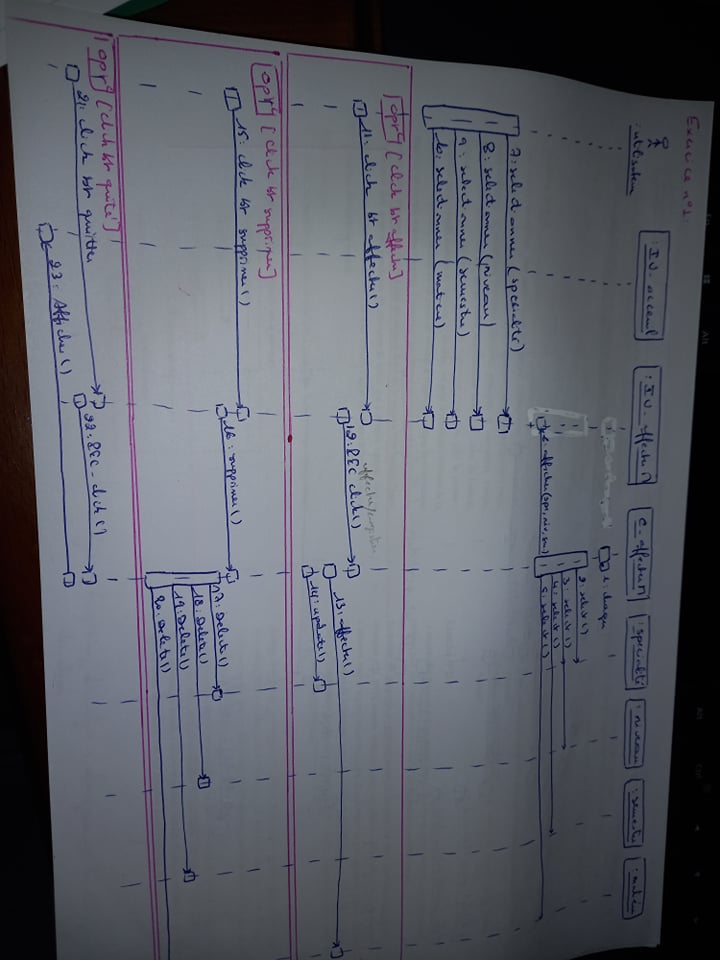 Exercice n°1:
:utilisateur
:IU_acceuil
:IU_affectuⁿ
C_affectuⁿ
:specialité
:niveau
:semestre
:matière
1: charger
2: select()
3: select()
4: select()
5: select()
6: afficher(spe, niv, sm)
7: selectionner (specialité)
8: selectionner (niveau)
9: selectionner (semestre)
10: selectionner (matiere)
[click bt affecter]
11: click bt affecter()
12: REC click()
13: affecter()
14: update()
[click bt supprimer]
15: click bt supprimer()
16: supprimer()
17: Delete()
18: Delete()
19: Delete()
20: Delete()
[click bt quité]
21: click bt quitter
22: REC_click()
23: Afficher()